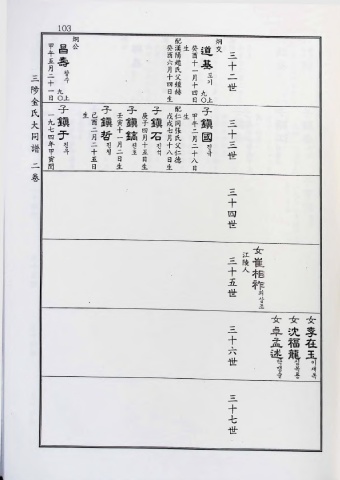 103
三十二世
炯文
道基 도기 九〇上
癸酉十一月十四日生
配漢陽趙氏父鍰赫
癸酉六月十四日生
炯公
昌壽 창수 九〇上
甲午五月二十一日
三十三世
子鎭國 진국
甲午二月二十八日
配仁同張氏父仁德
戊戌七月十八日生
子鎭石 진석
庚子四月十五日生
子鎭鎬 진호
壬寅十一月二日生
子鎭哲 진철
己酉二月二十五日生
子鎭于 진우
一九七四年甲寅閏
三十四世
三十五世
女崔相祚 최상조
江陵人
三十六世
女李在玉 이재옥
女沈福龍 심복룡
女卓孟述 탁맹술
三十七世
三陟金氏大同譜 二卷